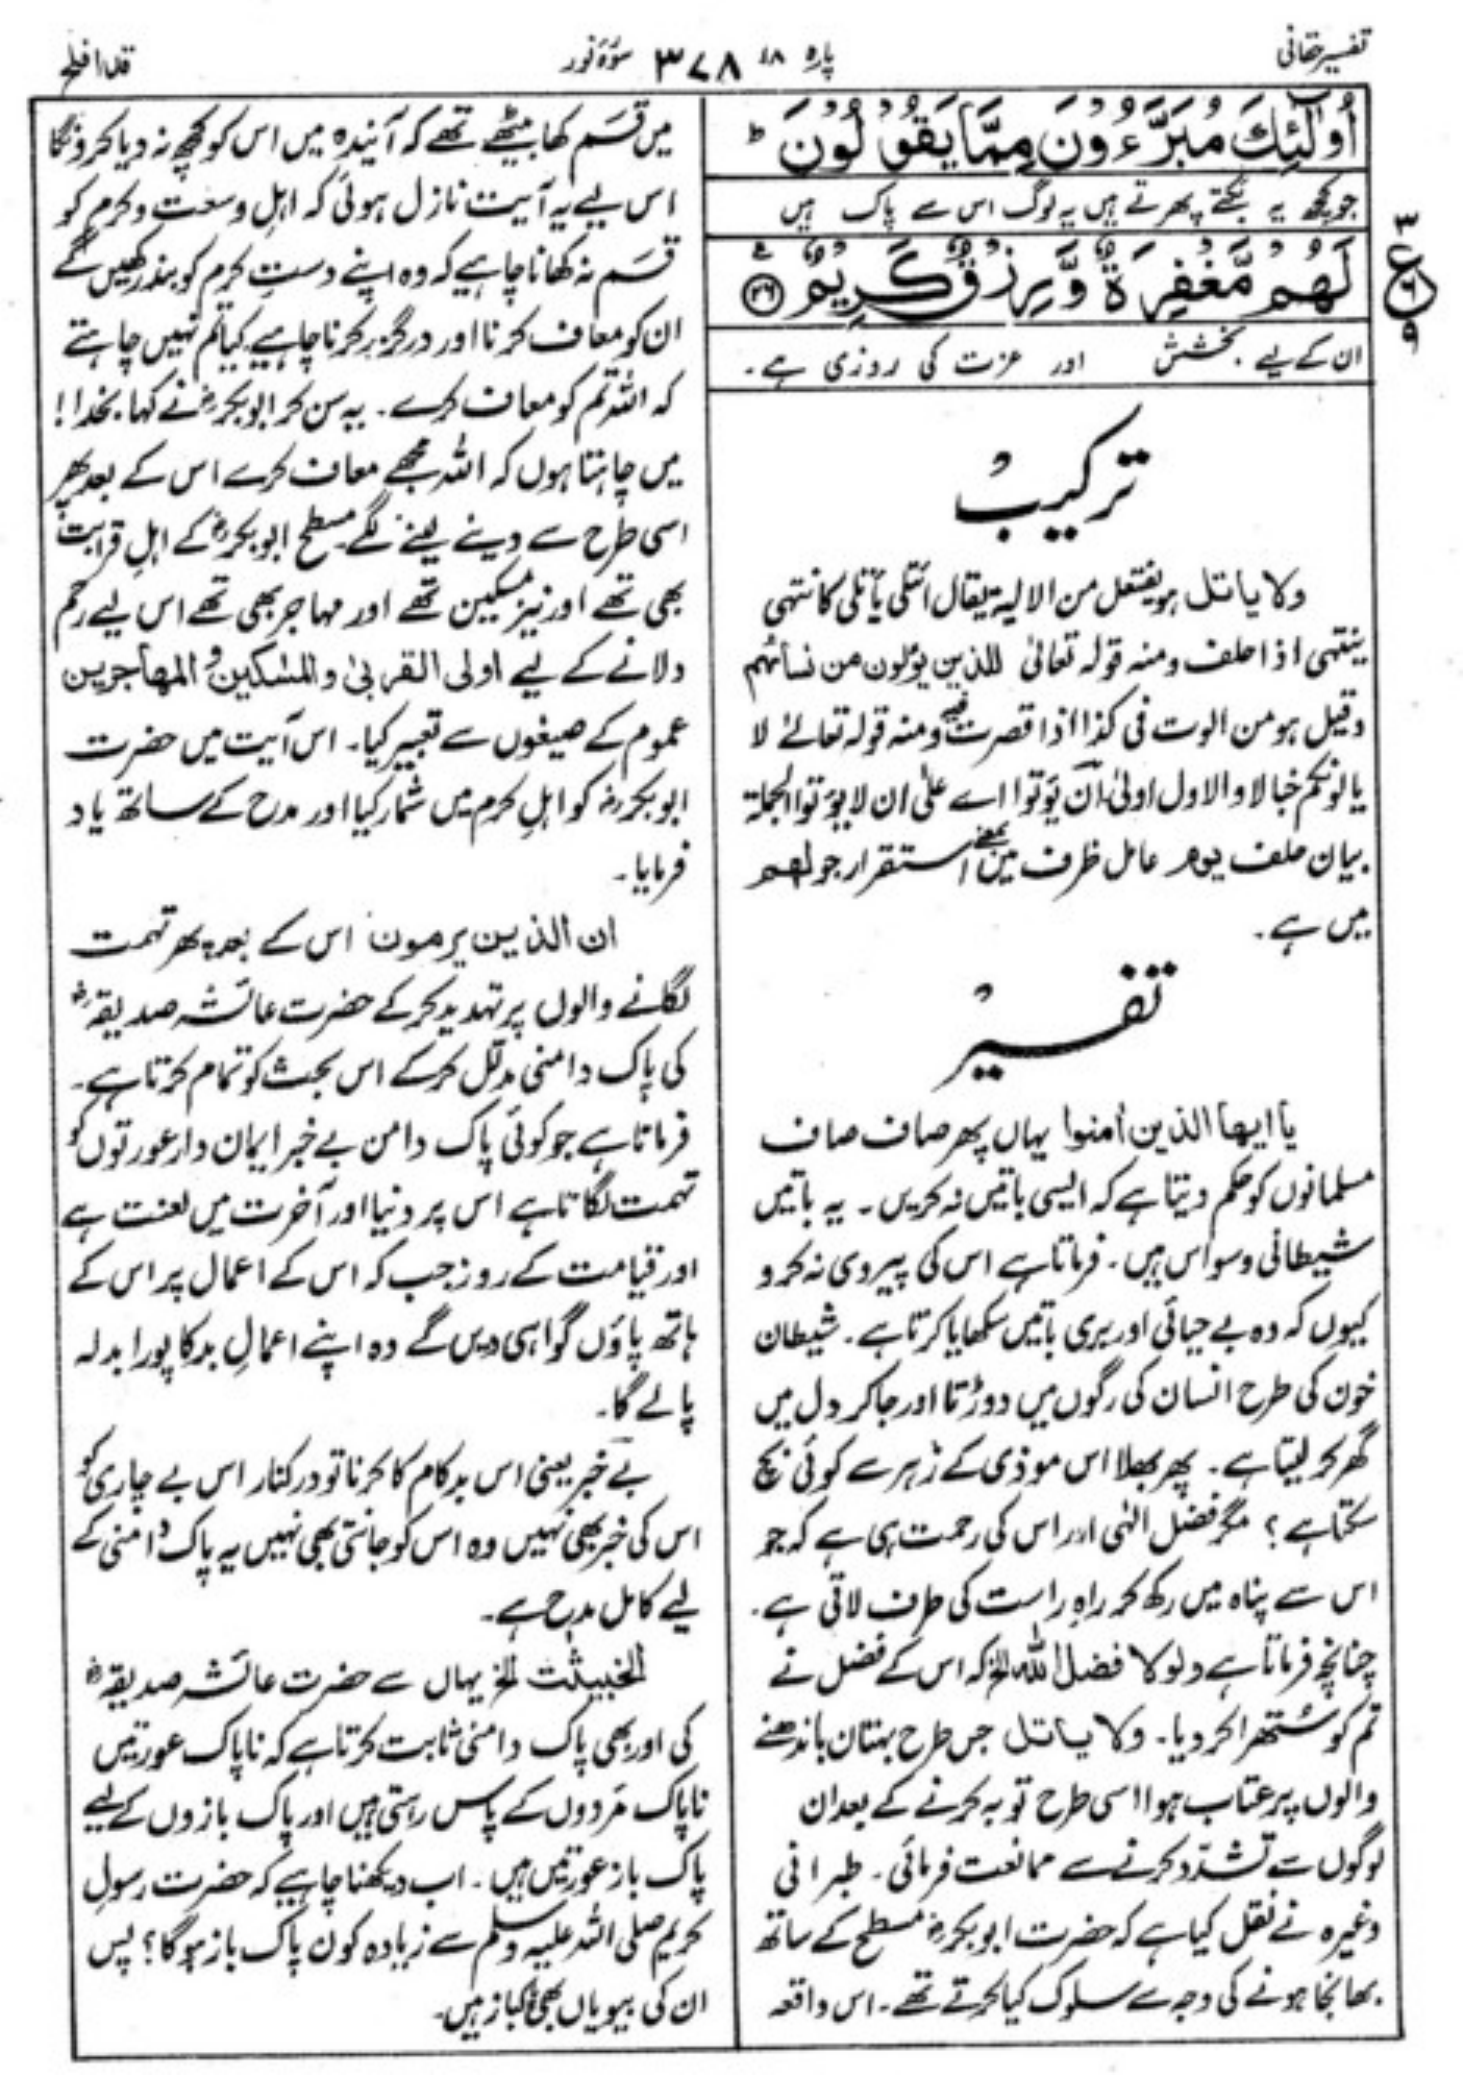 تفسیر حقانی
پارہ ۱۸
۳۷۸
سُوْرَۃ نُور
قد افلح
أُولَٰئِكَ مُبَرَّءُونَ مِمَّا يَقُولُونَ ط
جو کچھ یہ بکتے پھرتے ہیں یہ لوگ اس سے پاک ہیں
لَهُمْ مَّغْفِرَةٌ وَّرِزْقٌ كَرِيْمٌ ﴿۲۶﴾
ان کے لیے بخشش اور عزت کی روزی ہے۔
۳
ع
۶
۹
ترکیب
ولا یاتل ہو یفتعل من الالیۃ یقال ائتلی یأتلی کانتہی
ینتہی اذا حلف ومنہ قولہ تعالیٰ للذین یؤلون من نسائہم
وقیل ہو من الوت فی کذا اذا قصرت فیہ ومنہ قولہ تعالےٰ لا
یالونکم خبالا والاول اولیٰ ان یؤتوا اے علیٰ ان لا یؤتوا الجملۃ
بیان حلف یوم عامل ظرف میں معنے استقرار جو لھم
میں ہے۔
تفسیر
یا ایھا الذین اٰمنوا یہاں پھر صاف صاف
مسلمانوں کو حکم دیتا ہے کہ ایسی باتیں نہ کریں۔ یہ باتیں
شیطانی وسواس ہیں۔ فرماتا ہے اس کی پیروی نہ کرو
کیوں کہ وہ بے حیائی اور بری باتیں سکھایا کرتا ہے۔ شیطان
خون کی طرح انسان کی رگوں میں دوڑتا اور جا کر دل میں
گھر کر لیتا ہے۔ پھر بھلا اس موذی کے زہر سے کوئی بچ
سکتا ہے؟ مگر فضل الٰہی اور اس کی رحمت ہی ہے کہ جو
اس سے پناہ میں رکھ کر راہِ راست کی طرف لاتی ہے۔
چنانچہ فرماتا ہے ولولا فضل اللّٰہ الخ کہ اس کے فضل نے
تم کو ستھرا کر دیا۔ ولا یاتل جس طرح بہتان باندھنے
والوں پر عتاب ہوا اسی طرح توبہ کرنے کے بعد ان
لوگوں سے تشدّد کرنے سے ممانعت فرمائی۔ طبرانی
وغیرہ نے نقل کیا ہے کہ حضرت ابوبکرؓ مسطح کے ساتھ
بھانجا ہونے کی وجہ سے سلوک کیا کرتے تھے۔ اس واقعہ
میں قسَم کھا بیٹھے تھے کہ آیندہ میں اس کو کچھ نہ دیا کروں گا
اس لیے یہ آیت نازل ہوئی کہ اہلِ وسعت و کرم کو
قسَم نہ کھانا چاہیے کہ وہ اپنے دستِ کرم کو بند رکھیں گے
ان کو معاف کرنا اور درگزر کرنا چاہیے کیا تم نہیں چاہتے
کہ اللہ تم کو معاف کرے۔ یہ سن کر ابوبکرؓ نے کہا بخدا!
میں چاہتا ہوں کہ اللہ مجھے معاف کرے اس کے بعد پھر
اسی طرح سے دینے لینے لگے۔ مسطح ابوبکرؓ کے اہلِ قرابت
بھی تھے اور نیز مسکین تھے اور مہاجر بھی تھے اس لیے رحم
دلانے کے لیے اولی القربیٰ والمسٰکین والمھاجرین
عموم کے صیغوں سے تعبیر کیا۔ اس آیت میں حضرت
ابوبکرؓ کو اہلِ کرم میں شمار کیا اور مدح کے ساتھ یاد
فرمایا۔
ان الذین یرمون اس کے بعد پھر تہمت
لگانے والوں پر تہدید کرکے حضرت عائشہ صدیقہؓ
کی پاک دامنی مدلّل کرکے اس بحث کو تمام کرتا ہے۔
فرماتا ہے جو کوئی پاک دامن بے خبر ایمان دار عورتوں کو
تہمت لگاتا ہے اس پر دنیا اور آخرت میں لعنت ہے
اور قیامت کے روز جب کہ اس کے اعمال پر اس کے
ہاتھ پاؤں گواہی دیں گے وہ اپنے اعمالِ بد کا پورا بدلہ
پالے گا۔
بے خبر یعنی اس بد کام کا کرنا تو درکنار اس بے چاری کو
اس کی خبر بھی نہیں وہ اس کو جانتی بھی نہیں یہ پاک دامنی کے
لیے کامل مدح ہے۔
الخبیثٰت الخ یہاں سے حضرت عائشہ صدیقہؓ
کی اور بھی پاک دامنی ثابت کرتا ہے کہ ناپاک عورتیں
ناپاک مَردوں کے پاس رہتی ہیں اور پاک بازوں کے لیے
پاک باز عورتیں ہیں۔ اب دیکھنا چاہیے کہ حضرت رسولِ
کریم صلی اللہ علیہ وسلم سے زیادہ کون پاک باز ہو گا؟ پس
ان کی بیویاں بھی پاکباز ہیں۔